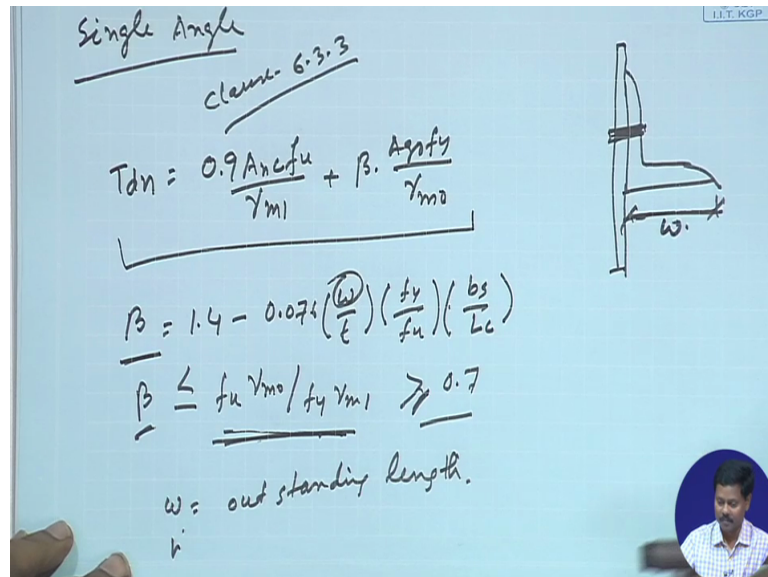 I.I.T. KGP
Single Angle
Clause- 6.3.3
Tdn = 0.9 Anc fu / γm1 + β. Ago fy / γm0
β = 1.4 - 0.076 (w/t) (fy/fu) (bs/Lc)
β ≤ fu γm0 / fy γm1 ≥ 0.7
w = outstanding length.
w.